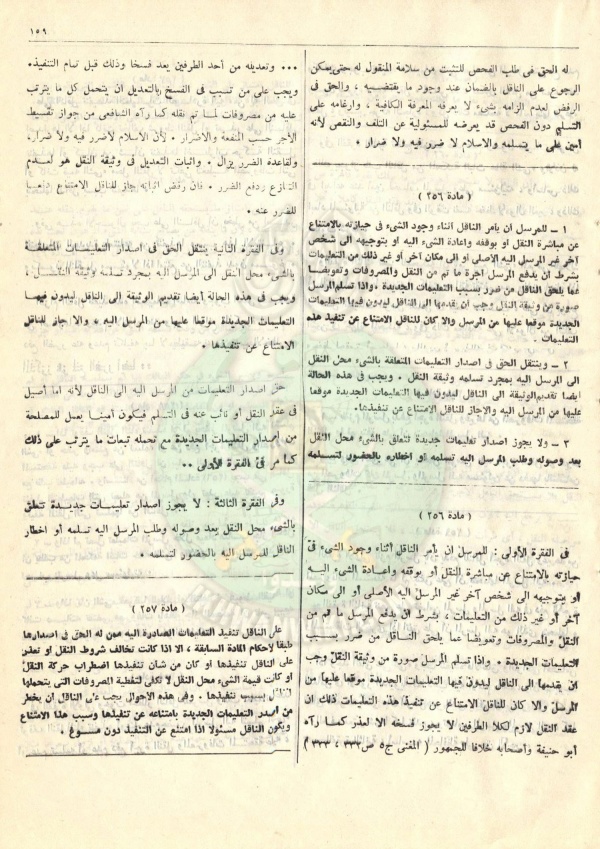 ١٥٩
له الحق فى طلب الفحص للتثبت من سلامة المنقول له حتى يمكن
الرجوع على الناقل بالضمان عند وجود ما يقتضيه ، والحق فى
الرفض لعدم الزامه بشىء لا يعرفه المعرفة الكافية ، وارغامه على
التسلم دون الفحص قد يعرضه للمسئولية عن التلف والنقص لأنه
أمين على ما يتسلمه والاسلام لا ضرر فيه ولا ضرار ٠
( مادة ٢٥٦ )
١ – للمرسل أن يأمر الناقل أثناء وجود الشىء فى حيازته بالامتناع
عن مباشرة النقل أو بوقفه واعادة الشىء اليه أو بتوجيهه الى شخص
آخر غير المرسل اليه الأصلى أو الى مكان آخر أو غير ذلك من التعليمات
بشرط أن يدفع المرسل أجرة ما تم من النقل والمصروفات وتعويضا
عما يلحق الناقل من ضرر بسبب التعليمات الجديدة ، واذا تسلم المرسل
صورة من وثيقة النقل وجب أن يقدمها الى الناقل ليدون فيها التعليمات
الجديدة موقعا عليها من المرسل والا كان للناقل الامتناع عن تنفيذ هذه
التعليمات ٠
٢ – وينتقل الحق فى اصدار التعليمات المتعلقة بالشىء محل النقل
الى المرسل اليه بمجرد تسلمه وثيقة النقل ٠ ويجب فى هذه الحالة
أيضا تقديم الوثيقة الى الناقل ليدون فيها التعليمات الجديدة موقعا
عليها من المرسل اليه والا جاز للناقل الامتناع عن تنفيذها ٠
٣ – ولا يجوز اصدار تعليمات جديدة تتعلق بالشىء محل النقل
بعد وصوله وطلب المرسل اليه تسلمه أو اخطاره بالحضور لتسلمه
( مادة ٢٥٦ )
فى الفقرة الأولى : للمرسل ان يأمر الناقل أثناء وجود الشىء فى
حيازته بالامتناع عن مباشرة النقل أو بوقفه واعادة الشىء اليه
أو بتوجيهه الى شخص آخر غير المرسل اليه الأصلى أو الى مكان
آخر أو غير ذلك من التعليمات ، بشرط ان يدفع المرسل ما تم من
النقل والمصروفات وتعويضا عما يلحق الناقل من ضرر بسبب
التعليمات الجديدة ٠ واذا تسلم المرسل صورة من وثيقة النقل وجب
ان يقدمها الى الناقل ليدون فيها التعليمات الجديدة موقعا عليها من
المرسل والا كان للناقل الامتناع عن تنفيذ هذه التعليمات ذلك ان
عقد النقل لازم لكلا الطرفين لا يجوز فسخه الا لعذر كما رآه
أبو حنيفة وأصحابه خلافا للجمهور ( المغنى ج٥ ص٣٣٢ ، ٣٣٣ )
٠٠٠ وتعديله من أحد الطرفين يعد فسخا وذلك قبل تمام التنفيذ٠
ويجب على من تسبب فى الفسخ بالتعديل ان يتحمل كل ما يترتب
عليه من مصروفات لما تم نقله كما رآه الشافعى من جواز تقسيط
الأجر حسب المنفعة والاضرار ٠ لأن الاسلام لا ضرر فيه ولا ضرار،
ولقاعدة الضرر يزال ٠ واثبات التعديل فى وثيقة النقل هو لعدم
التنازع ودفع الضرر ٠ فان رفض اثباته جاز للناقل الامتناع دفعا
للضرر عنه ٠
وفى الفقرة الثانية ينتقل الحق فى اصدار التعليمات المتعلقة
بالشىء محل النقل الى المرسل اليه بمجرد تسلمه وثيقة النقل ،
ويجب فى هذه الحالة أيضا تقديم الوثيقة الى الناقل ليدون فيها
التعليمات الجديدة موقعا عليها من المرسل اليه ، والا جاز للناقل
الامتناع عن تنفيذها ٠
حق اصدار التعليمات من المرسل اليه الى الناقل لأنه اما أصيل
فى عقد النقل أو نائب عنه فى التسلم فيكون أمينا يعمل للمصلحة
من اصدار التعليمات الجديدة مع تحمله تبعات ما يترتب على ذلك
كما مر فى الفقرة الأولى ٠٠
وفى الفقرة الثالثة : لا يجوز اصدار تعليمات جديدة تتعلق
بالشىء محل النقل بعد وصوله وطلب المرسل اليه تسلمه أو اخطار
الناقل للمرسل اليه بالحضور لتسلمه ٠
( مادة ٢٥٧ )
على الناقل تنفيذ التعليمات الصادرة اليه ممن له الحق فى اصدارها
طبقا لأحكام المادة السابقة ، الا اذا كانت تخالف شروط النقل أو تعذر
على الناقل تنفيذها أو كان من شأن تنفيذها اضطراب حركة النقل
أو كانت قيمة الشىء محل النقل لا تكفى لتغطية المصروفات التى يتحملها
الناقل بسبب تنفيذها ٠ وفى هذه الأحوال يجب على الناقل أن يخطر
من أصدر التعليمات الجديدة بامتناعه عن تنفيذها وسبب هذا الامتناع
ويكون الناقل مسئولا اذا امتنع عن التنفيذ دون مسوغ ٠